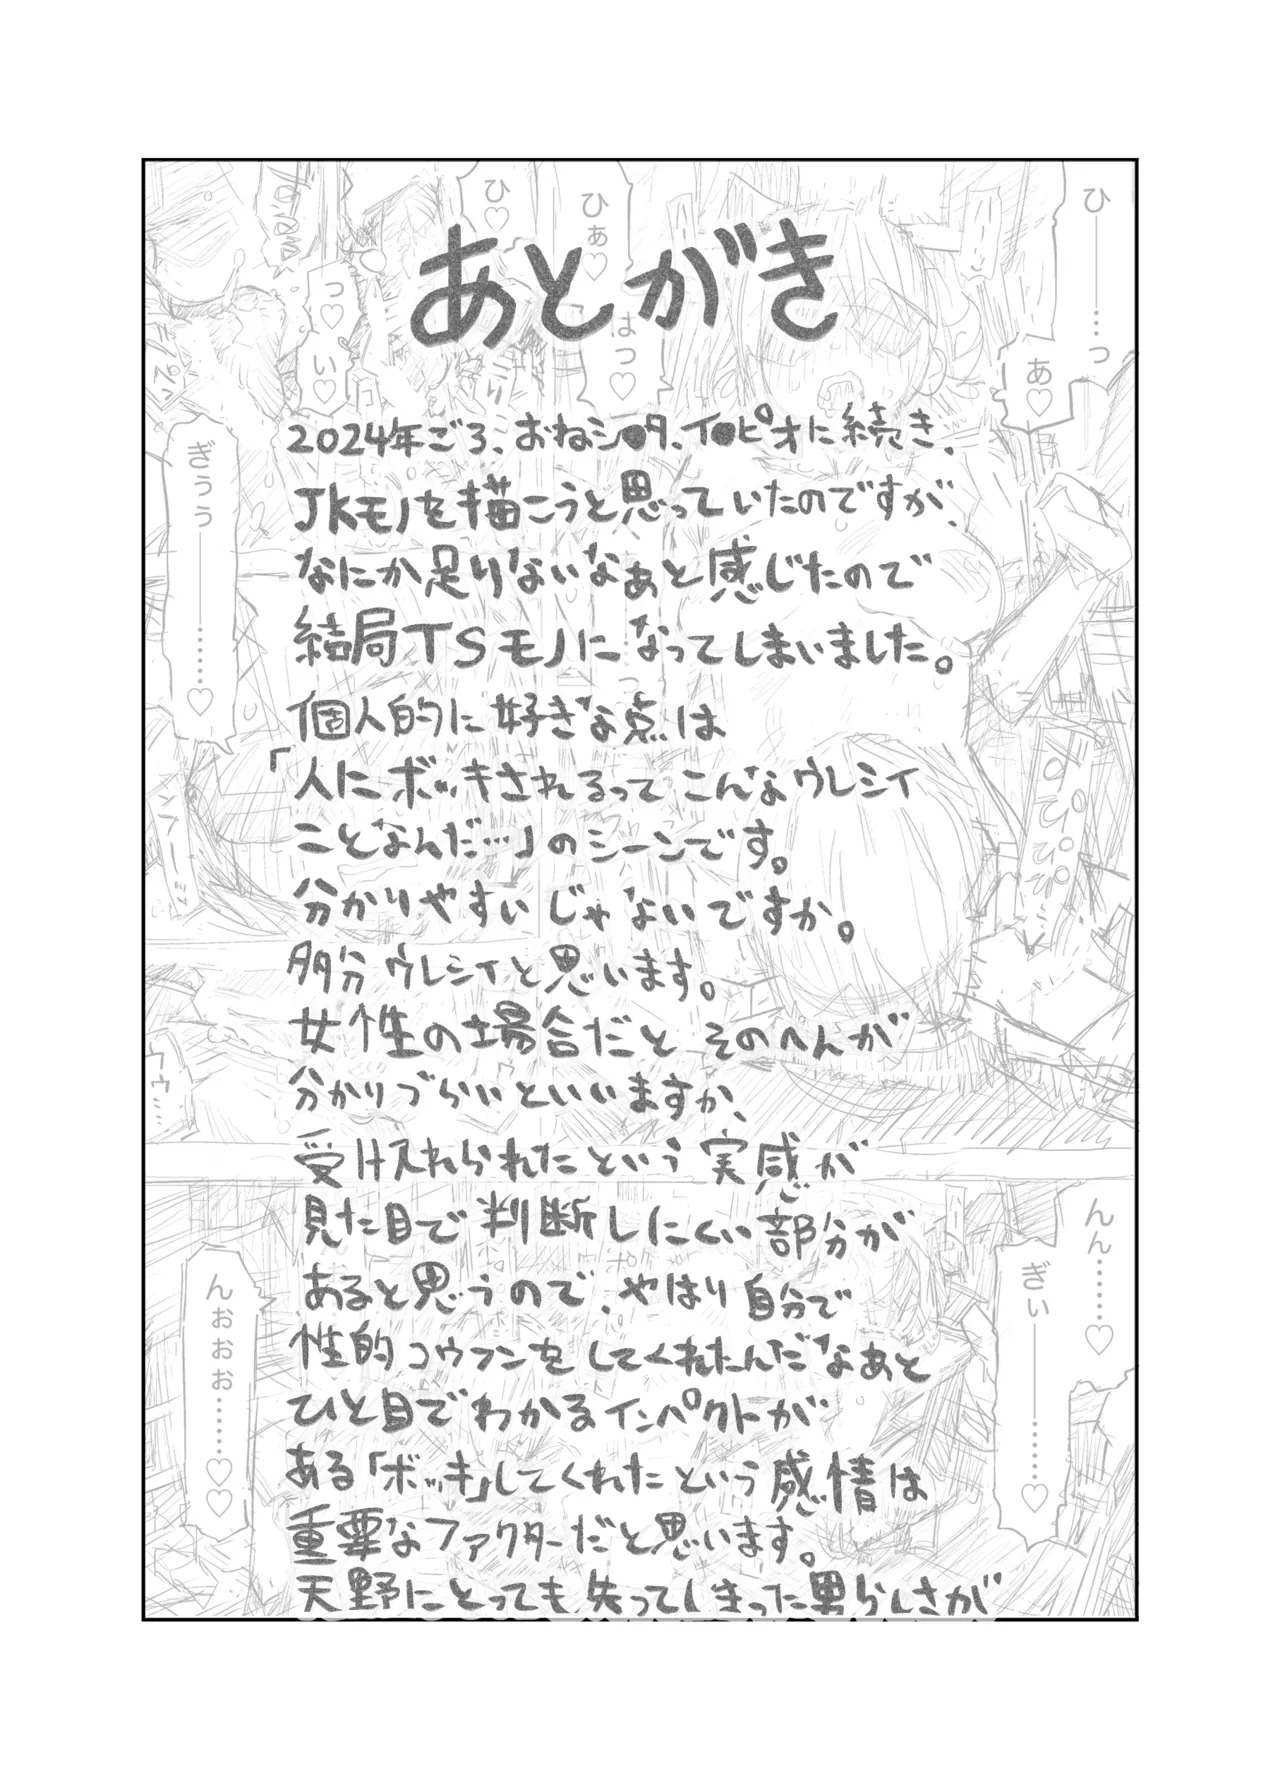 あとがき
2024年ごろ、おねシ●タ、イ●ピオに続き、
JKモノを描こうと思っていたのですが、
なにか足りないなぁと感じたので
結局TSモノになってしまいました。
個人的に好きな点は
「人にボッキされるってこんなウレシイ
ことなんだ…」のシーンです。
分かりやすいじゃないですか。
多分ウレシイと思います。
女性の場合だとそのへんが
分かりづらいといいますか、
受け入れられたという実感が
見た目で判断しにくい部分が
あると思うので、やはり自分で
性的コウフンをしてくれたんだなぁと
ひと目でわかるインパクトが
ある「ボッキ」してくれたという感情は
重要なファクターだと思います。
天野にとっても失ってしまった男らしさが